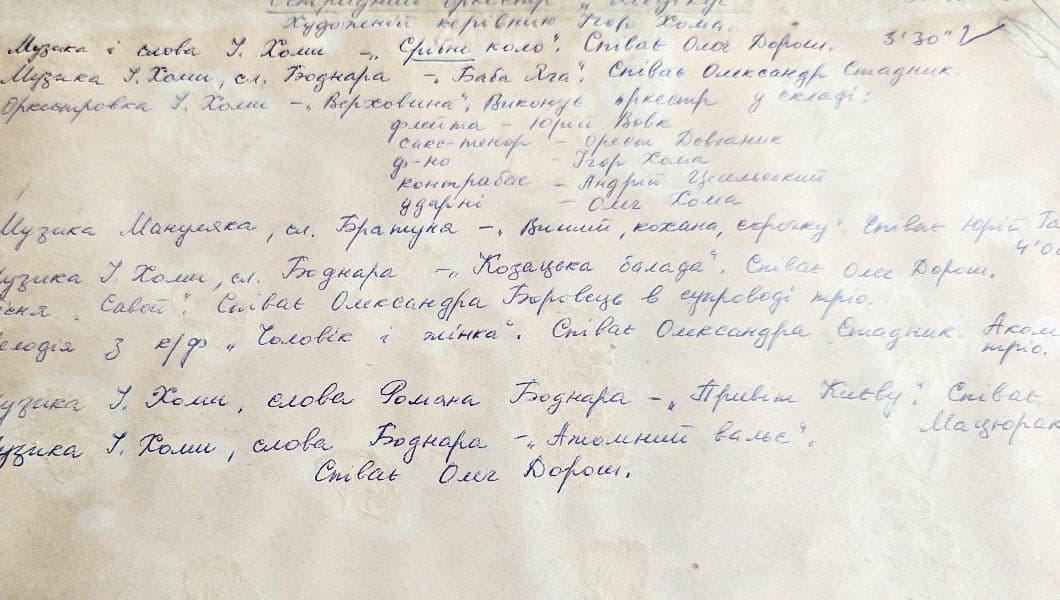 Естрадний оркестр „Медікус"
Художній керівник Ігор Хома.
Музика і слова І. Хоми – „Срібне коло". Співає Олег Дорош. 3'30"
Музика І. Хоми, сл. Боднара – „Баба Яга". Співає Олександр Стадник.
Оркестровка І. Хоми – „Верховина". Виконує оркестр у складі:
флейта – Юрій Вовк
сакс-тенор – Орест Довганик
ф-но – Ігор Хома
контрабас – Андрій
ударні – Олег Хома
Музика Мануляка, сл. Братуня – „Виший, кохана, сорочку". Співає Юрій
4'0
Музика І. Хоми, сл. Боднара – „Козацька балада". Співає Олег Дорош.
існя „Савой". Співає Олександра Боровець в супроводі тріо.
елодія з к/ф „Чоловік і жінка". Співає Олександра Стадник. Аком
тріо.
узика І. Хоми, слова Романа Боднара – „Привіт Києву". Співає
Мацюрак
узика І. Хоми, слова Боднара – „Атомний вальс".
Співає Олег Дорош.